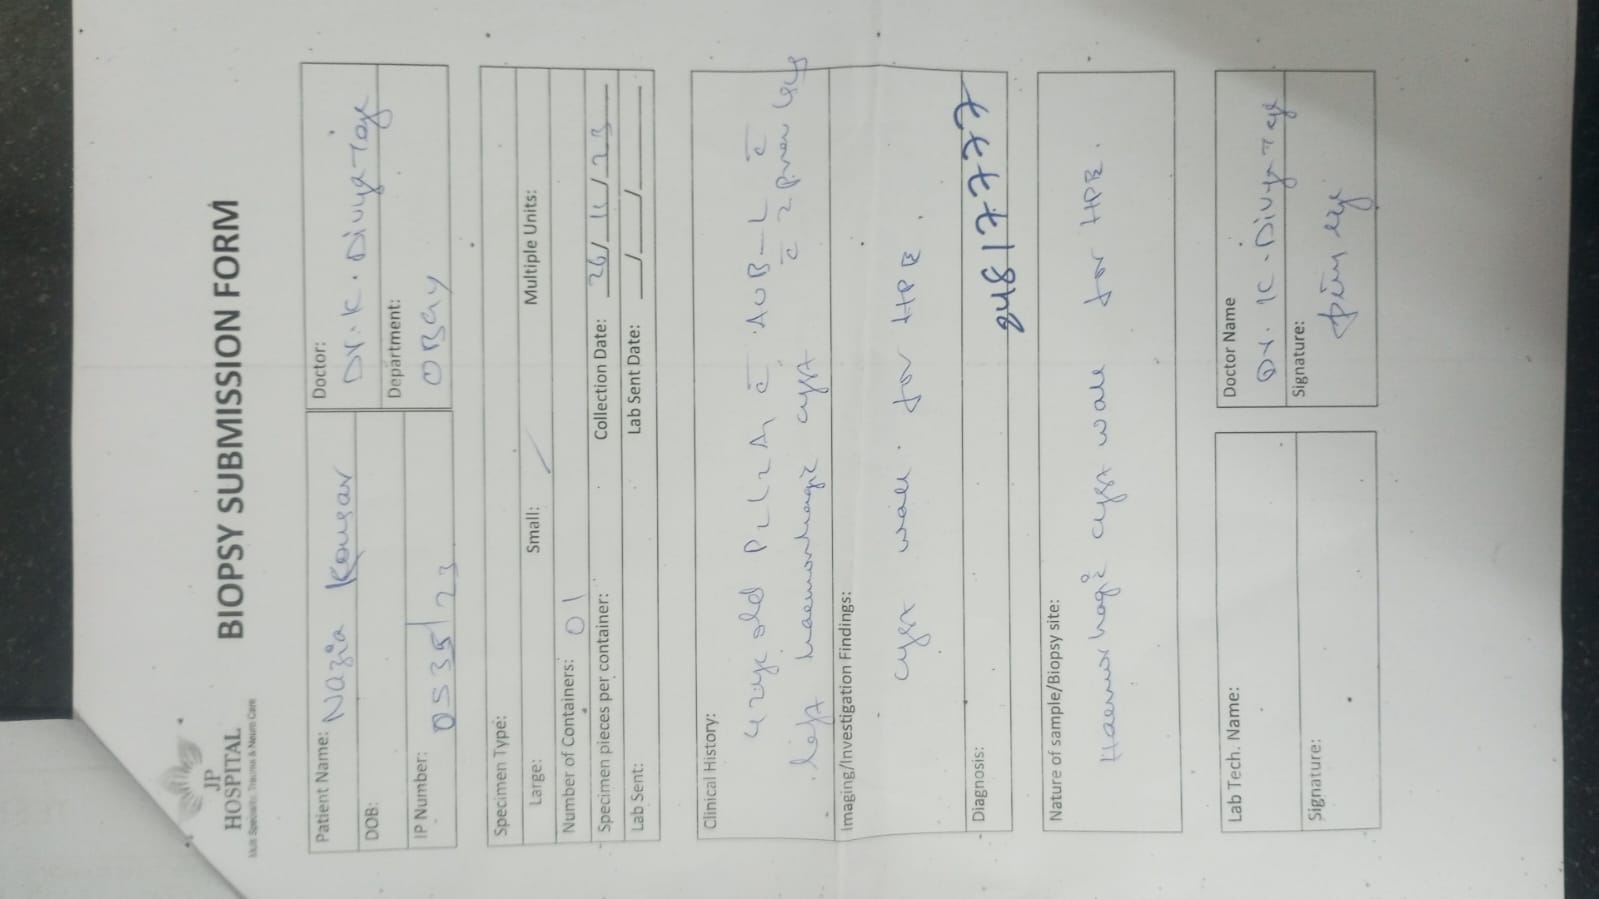 JP
HOSPITAL
Multi Speciality, Trauma & Neuro Care
BIOPSY SUBMISSION FORM
Patient Name: Nazia Kousar
Doctor:
Dr. K. Divya Teja
DOB:
Department:
OBGY
IP Number:
0535/23
Specimen Type:
Large: Small: Multiple Units:
Number of Containers: 01
Specimen pieces per container: Collection Date: 26/11/23
Lab Sent: Lab Sent Date: __/__/__
Clinical History:
42 yr old P2L2A1 c̄ AUB-L c̄
left haemorrhagic cyst c̄ 2 prev
Imaging/Investigation Findings:
cyst wall for HPE.
Diagnosis:
24817777
Nature of sample/Biopsy site:
Haemorrhagic cyst wall for HPE.
Lab Tech. Name:
Doctor Name
Dr. K. Divya Teja
Signature:
Signature: